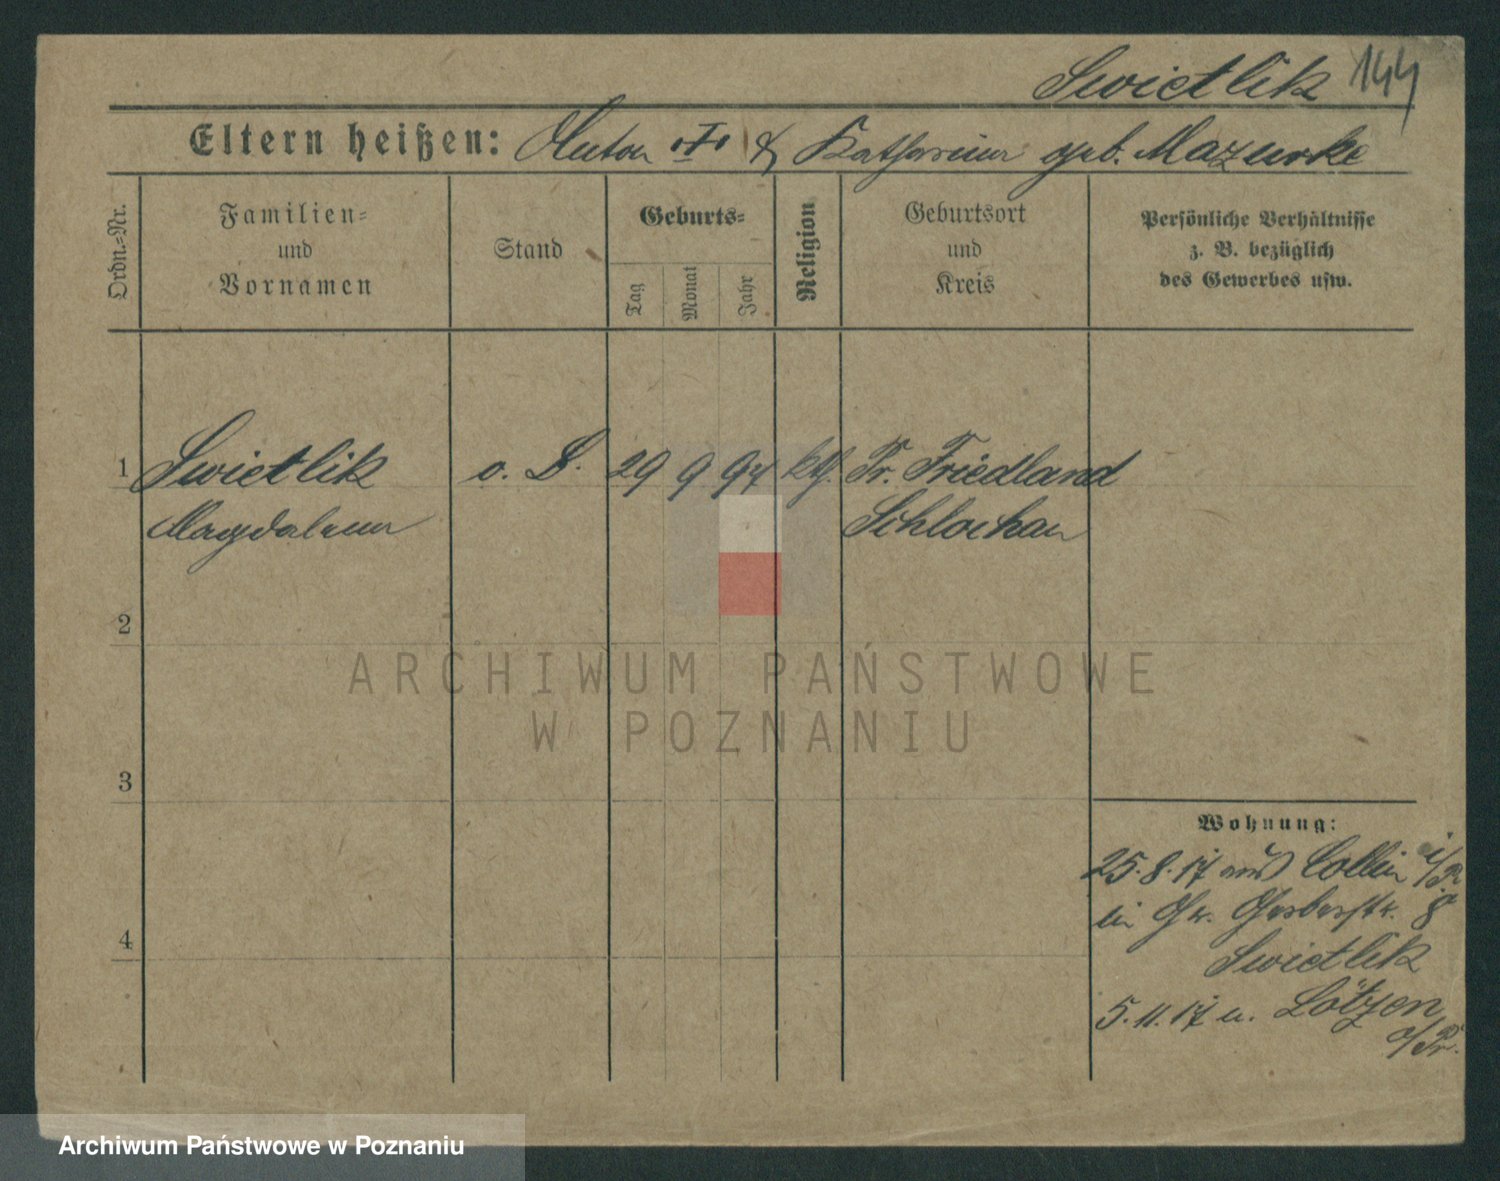 Swietlik 144
Eltern heißen: Anton & Katharina geb. Mazurke
Ordn.=Nr.
Familien=
und
Vornamen
Stand
Geburts=
Tag
Monat
Jahr
Religion
Geburtsort
und
Kreis
Persönliche Verhältnisse
z. B. bezüglich
des Gewerbes usw.
1 Swietlik o. B. 29 9 97 kth. Pr. Friedland
Magdalena Schlochau
2
ARCHIWUM PAŃSTWOWE
W POZNANIU
3
Wohnung:
25.8.17 aus Collin i/P.
in Gr. Gerberstr. 8
Swietlik
4
5.11.17 n. Lötzen
o/Pr.
Archiwum Państwowe w Poznaniu